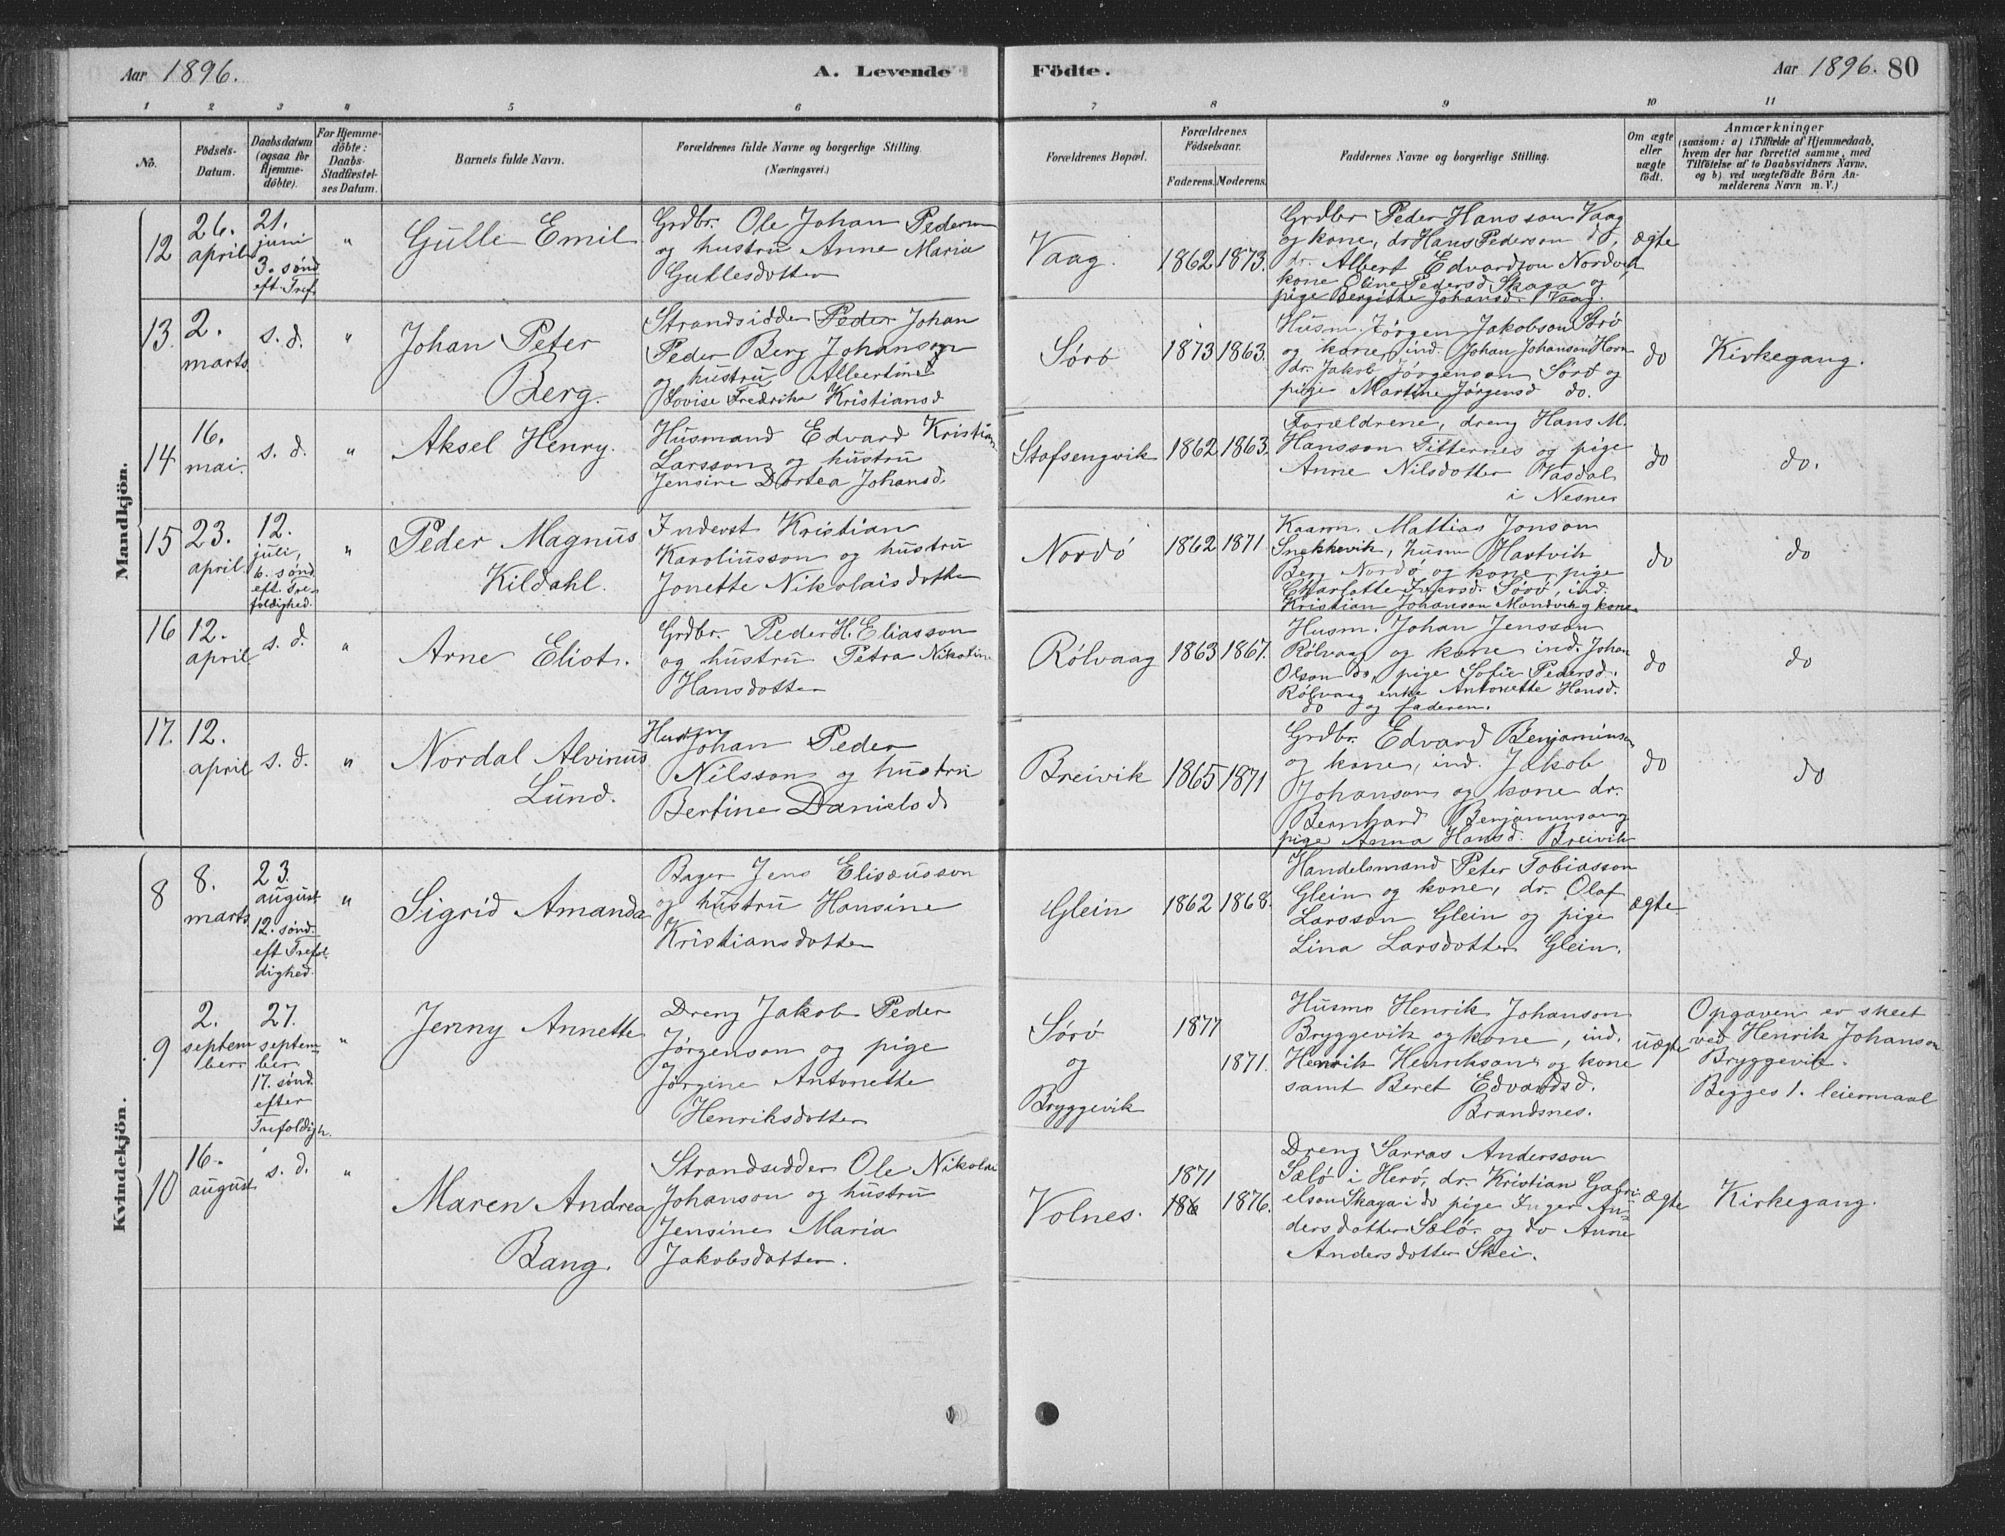 Aar 1896.
A. Levende
Födte.
Aar 1896. 80
1 2 3 4 5 6 7 8 9 10 11
No.
Födsels-
Datum.
Daabsdatum
(ogsaa for
Hjemme-
döbte).
For Hjemme-
döbte:
Daabs-
Stadfæstel-
ses Datum.
Barnets fulde Navn.
Forældrenes fulde Navne og borgerlige Stilling.
(Næringsvei.)
Forældrenes Bopæl.
Forældrenes
Födselsaar.
Faderens. Moderens.
Faddernes Navne og borgerlige Stilling.
Om ægte
eller
uægte
födt.
Anmærkninger
(saasom: a) i Tilfælde af Hjemmedaab,
hvem der har forrettet samme, med
Tilföielse af to Daabsvidners Navne,
og b) ved uægtefödte Börn An-
melderens Navn m. V.)
Mandkjön.
12
26.
april
21.
juni
3. sønd
eft. Tref.
"
Gulle Emil
Grdbr. Ole Johan Pederson
og hustru Anne Maria
Gullesdotter
Vaag.
1862 1873.
Grdbr Peder Hansson Vaag
og kone, dr Hans Pederson do,
dr. Albert Edvardson Nordvik
kone Oline Pedersd. Skaga og
pige Bergitte Johansd. Vaag.
ægte
13.
2.
marts
s. d.
"
Johan Peter
Berg.
Strandsidder Peder Johan
Peder Berg Johanson
og hustru Albertine
Lovise Fredrike Kristiansd
Sørø
1873 1863.
Husm. Jörgen Jakobson Sörö
og kone, ind. Johan Johanson Horn
dr. Jakob Jörgenson Sörö og
pige Martine Jörgensd do.
do
Kirkegang.
14
16.
mai.
s. d.
"
Aksel Henry.
Husmand Edvard Kristian
Larsson og hustru
Jensine Dortea Johansd.
Stafsengvik
1862 1863.
Forældrene, dreng Hans M.
Hansson Titternes og pige
Anne Nilsdotter Vasdal
i Nesne
do
do.
15
23.
april
12.
juli,
6. sønd.
eft. Tre-
foldighed.
"
Peder Magnus
Kildahl.
Inderst Kristian
Karoliusson og hustru
Jonette Nikolaisdotter
Nordö
1862 1871
Kaarm. Mattias Jonson
Snekkevik, husm Hartvik
Berg Nordö og kone, pige
Charlotte Iversd. Sörö, ind.
Kristian Johanson Mandvik og kone
do
do
16
12.
april
s. d.
"
Arne Eliot.
Grdbr. Peder H. Eliasson
og hustru Petra Nikoline
Hansdotter
Rölvaag
1863 1867.
Husm. Johan Jensson
Rölvaag og kone ind. Johan
Olson do, pige Sofie Pedersd.
Rölvaag enke Antonette Hansd.
do og faderen.
do
do
17.
12.
april
s. d.
"
Nordal Alvinus
Lund.
Husm
Johan Peder
Nilsson og hustru
Bertine Danielsd.
Breivik
1865 1871
Grdbr. Edvard Benjaminson
og kone, ind. Jakob
Johanson og kone dr.
Bernhard Benjaminson og
pige Anna Hansd. Breivik
do
do
Kvindekjön.
8
8.
marts
23.
august
12. sønd.
eft Trefol-
dighed.
"
Sigrid Amanda
Bager Jens Elisæusson
og hustru Hansine
Kristiansdotter
Glein
1862 1868.
Handelsmand Peter Tobiasson
Glein og kone, dr. Olaf
Larsson Glein og pige
Lina Larsdotter Glein.
ægte
9
2.
septem
ber
27.
septem-
ber
17. sønd.
efter
Trefoldigh.
"
Jenny Annette
Dreng Jakob Peder
Jørgenson og pige
Jørgine Antonette
Henriksdotter
Sørø
og
Bryggevik
1877
1871.
Husm Henrik Johanson
Bryggevik og kone, ind.
Henrik Henrikson og kone
samt Beret Edvardsd.
Brandsnes.
uægte
Opgaven er skeet
ved Henrik Johanson
Bryggevik.
Begges 1. leiermaal
10
16.
august
s. d.
"
Maren Andrea
Bang.
Strandsidder Ole Nikolai
Johanson og hustru
Jensine Maria
Jakobsdotter.
Volnes.
1871
186 1876.
Dreng Sarras Andersson
Sælö i Herö, dr. Kristian Gabri
elson Skaga i do pige Inger An-
dersdotter Sælö og do Anne
Andersdotter Skei.
ægte
Kirkegang.